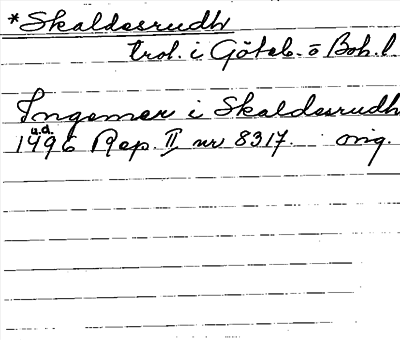 *Skaldesrudh
trol. i Göteb. o Boh. l.
Ingemar i Skaldesrudh
u.d.
1496 Rep. II, nr 8317. orig.